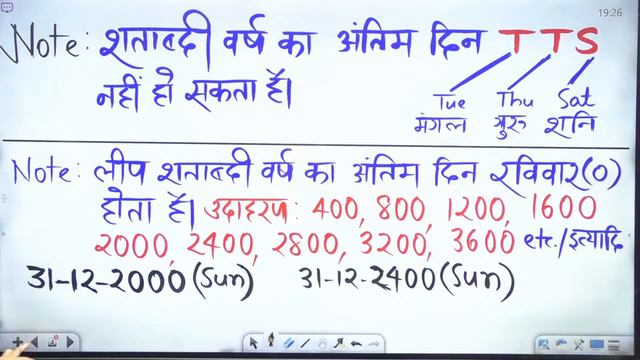 19:26
Note: शताब्दी वर्ष का अंतिम दिन TTS
नहीं हो सकता है।
Tue Thu Sat
मंगल गुरु शनि
Note: लीप शताब्दी वर्ष का अंतिम दिन रविवार(0)
होता है। उदाहरण: 400, 800, 1200, 1600
2000, 2400, 2800, 3200, 3600 etc./इत्यादि
31-12-2000 (Sun) 31-12-2400 (Sun)